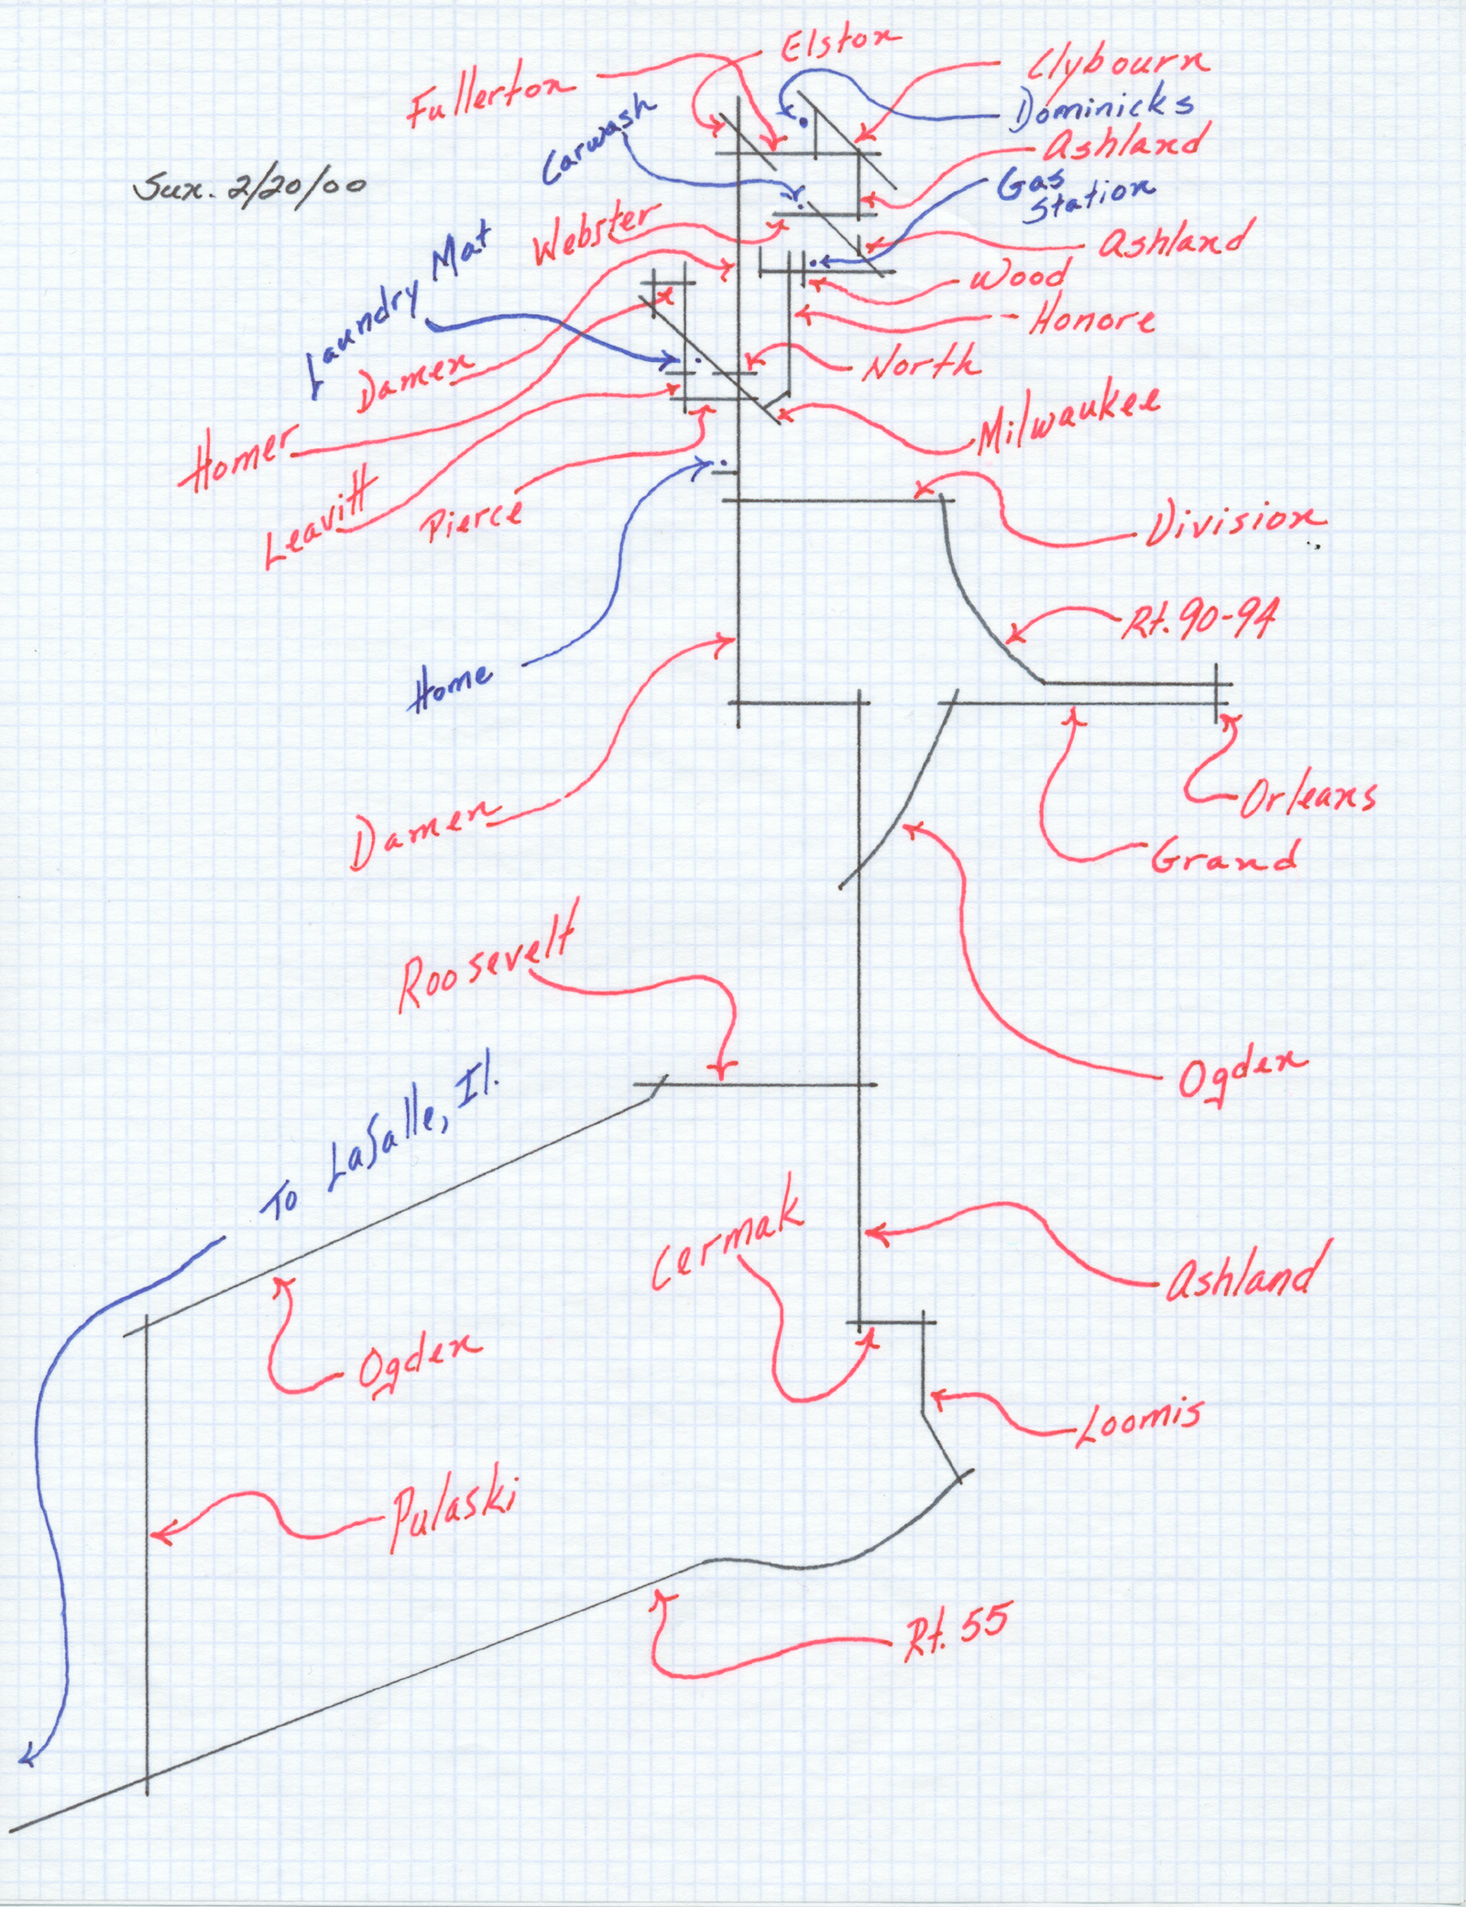 Elston
Fullerton
Clybourn
Dominicks
Carwash
Ashland
Sun. 2/20/00
Gas
Station
Webster
Ashland
Laundry Mat
Wood
Honore
Damen
North
Milwaukee
Homer
Leavitt
Pierce
Division
Rt. 90-94
Home
Orleans
Damen
Grand
Roosevelt
Ogden
To LaSalle, Il.
Cermak
Ashland
Ogden
Loomis
Pulaski
Rt. 55